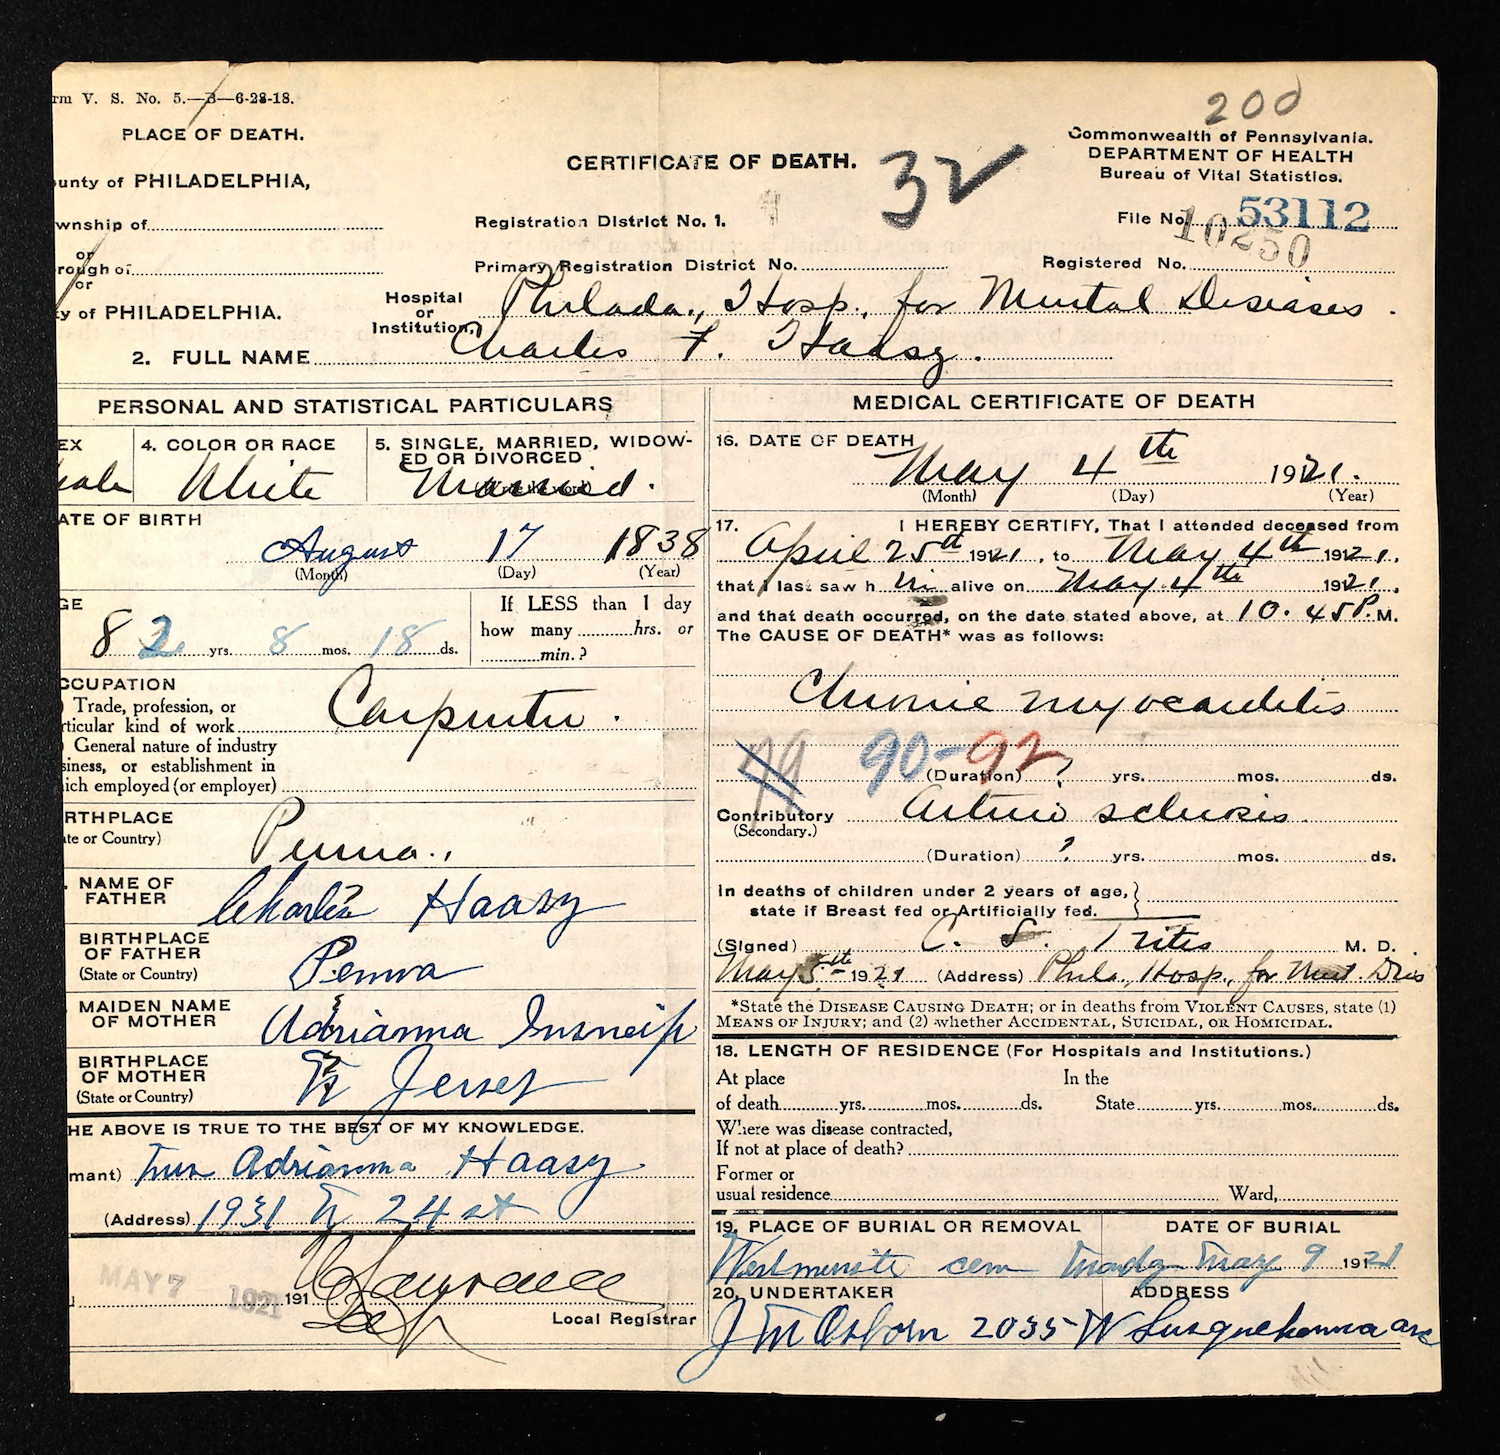 rm V. S. No. 5.—3—6-28-18.
200
PLACE OF DEATH.
Commonwealth of Pennsylvania.
CERTIFICATE OF DEATH.
32
DEPARTMENT OF HEALTH
Bureau of Vital Statistics.
unty of PHILADELPHIA,
wnship of
Registration District No. 1.
File No. 53112
10250
or
rough of
Primary Registration District No.
Registered No.
or
y of PHILADELPHIA.
Hospital or Institution, Philada., Hosp., for Mental Diseases.
2. FULL NAME Charles F. Haasz.
PERSONAL AND STATISTICAL PARTICULARS
EX
ale
4. COLOR OR RACE
White
5. SINGLE, MARRIED, WIDOW-
ED OR DIVORCED
Married.
ATE OF BIRTH
August 17 1838
(Month) (Day) (Year)
GE
82 yrs. 8 mos. 18 ds.
If LESS than 1 day
how many hrs. or
min.?
CCUPATION
) Trade, profession, or
rticular kind of work Carpenter.
) General nature of industry
siness, or establishment in
ich employed (or employer)
RTHPLACE
te or Country) Penna.,
. NAME OF
FATHER Charles Haasz
BIRTHPLACE
OF FATHER
(State or Country) Penna
MAIDEN NAME
OF MOTHER Adrianna
BIRTHPLACE
OF MOTHER
(State or Country) N Jersey
HE ABOVE IS TRUE TO THE BEST OF MY KNOWLEDGE.
mant) Adrianna Haasz
(Address) 1931 N 24 st
MAY 7 1921 191
Local Registrar
MEDICAL CERTIFICATE OF DEATH
16. DATE OF DEATH
May 4th 1921.
(Month) (Day) (Year)
17. I HEREBY CERTIFY, That I attended deceased from
April 25th 1921, to May 4th 1921,
that I last saw him alive on May 4th 1921,
and that death occurred, on the date stated above, at 10.45 P.M.
The CAUSE OF DEATH* was as follows:
Chronic myocarditis
79 90-92
(Duration) ? yrs. mos. ds.
Contributory Arterio sclerosis
(Secondary.)
(Duration) ? yrs. mos. ds.
In deaths of children under 2 years of age,
state if Breast fed or Artificially fed.
(Signed) C. S. Trites M. D.
May 5th 1921 (Address) Phila., Hosp., for Ment. Dis
*State the DISEASE CAUSING DEATH; or in deaths from VIOLENT CAUSES, state (1)
MEANS OF INJURY; and (2) whether ACCIDENTAL, SUICIDAL, OR HOMICIDAL.
18. LENGTH OF RESIDENCE (For Hospitals and Institutions.)
At place In the
of death yrs. mos. ds. State yrs. mos. ds.
Where was disease contracted,
If not at place of death?
Former or
usual residence Ward,
19. PLACE OF BURIAL OR REMOVAL DATE OF BURIAL
cem May 9 1921
20. UNDERTAKER ADDRESS
J M Osborn 2035 W Susquehanna ave